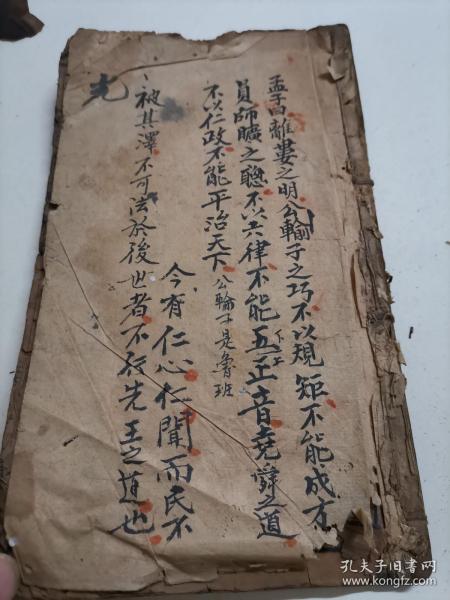 孟子曰離婁之明公輸子之巧不以規矩不能成方
員師曠之聰不以六律不能五正音堯舜之道
下上
不以仁政不能平治天下
公輸子是魯班
今有仁心仁聞而民不
被其澤不可法於後世者不行先王之道也
孔夫子旧书网
www.kongfz.com